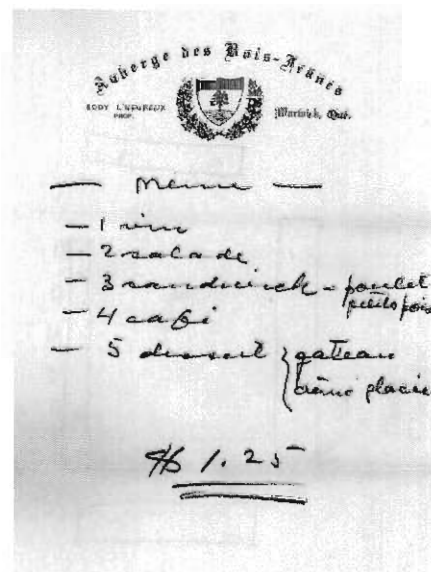 Auberge des Bois-Francs
EDDY L'HEUREUX
PROP.
Warwick, Qué.
— Menu —
— 1 vin
— 2 salade
— 3 sandwich - poulet
petits pois
— 4 café
— 5 dessert { gateau
crème glacée
$ 1.25